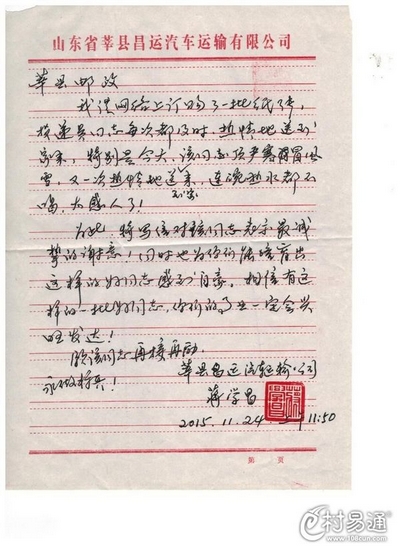 山东省莘县昌运汽车运输有限公司
莘县邮政
我从网络上订购了一批纸传,
投递员同志每次都及时、热情地送到
家来,特别是今天,该同志顶严寒冒风
雪,又一次热情地送来
到家
,连碗热水都不
喝,太感人了!
为此,特写信对该同志表示最诚
挚的谢意!同时也为你们能培育出
这样的好同志感到自豪。相信有这
样的一批好同志,你们的事业一定会兴
旺发达!
愿该同志再接再励,
永做标兵!
莘县昌运汽运输公司
蒋学昌
2015.11.24 11:50
第 页
村易通
www.108cun.com